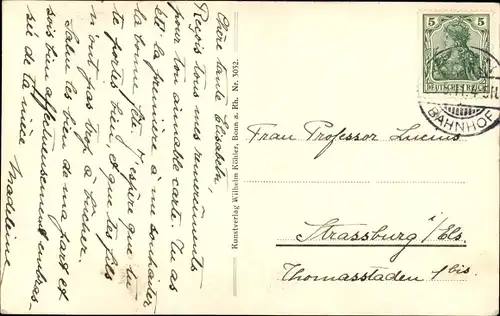 Chère tante Elisabeth,
Reçois tous mes remerciments
pour ton aimable carte. Tu as
été la première à me souhaiter
la bonne fête. J'espère que tu
te portes bien, et que tes fils
n'ont pas trop à bûcher.
Salue les bien de ma part et
sois bien affectueusement embras-
sée de ta nièce
Madeleine
Kunstverlag Wilhelm Köhler, Bonn a. Rh. Nr. 3032.
5 5
DEUTSCHES REICH
BAHNHOF
Frau Professor Lucius
Strassburg i/Els.
Thomasstaden 1 bis.